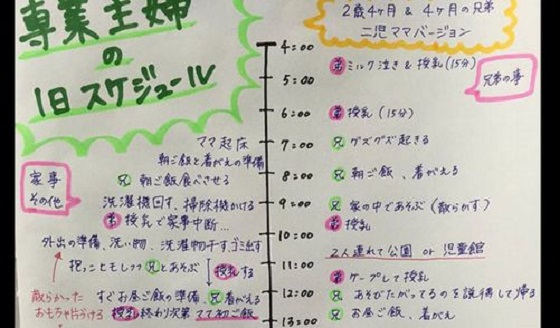 専業主婦
の
1日スケジュール
2歳4ヶ月 & 4ヶ月の兄弟
二児ママバージョン
4:00
弟 ミルク泣き & 授乳 (15分)
兄弟の事
5:00
6:00
弟 授乳 (15分)
ママ起床
7:00
兄 グズグズ起きる
朝ご飯と着がえの準備
家事
その他
兄 朝ご飯食べさせる
8:00
兄 朝ご飯、着がえる
洗濯機回す、掃除機かける
9:00
兄 家の中であそぶ (散らかす)
弟 授乳で家事中断…
弟 授乳
外出の準備、洗い物、洗濯物干すゴミ出す
10:00
2人連れて公園 or 児童館
抱っこヒモしつつ 兄とあそぶ
授乳する
11:00
弟 ケープして授乳
散らかった
おもちゃ片づける
すぐお昼ご飯の準備、兄着がえる
12:00
兄 あそびたがってるのを説得して帰る
授乳終わり次第 ママ初ご飯
13:00
兄 お昼ご飯、着がえ